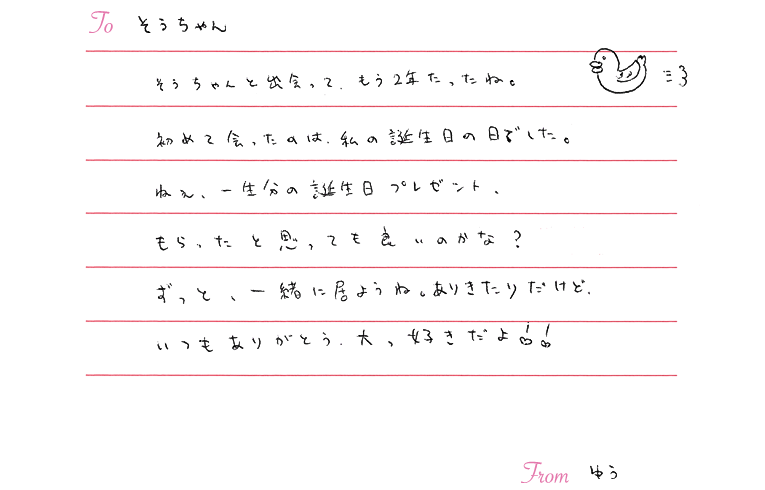 To そうちゃん
そうちゃんと出会って、もう2年たったね。
初めて会ったのは、私の誕生日の日でした。
ねぇ、一生分の誕生日プレゼント、
もらったと思っても良いのかな？
ずっと、一緒に居ようね。ありきたりだけど、
いつもありがとう、大っ好きだよ!!
From ゆう